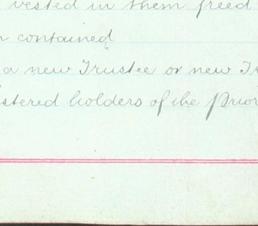 vested in them freed
contained
a new Trustee or new
holders of the Prior